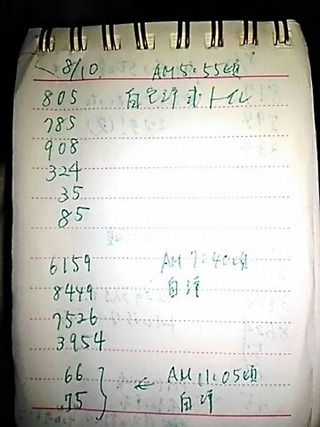 8/10 AM5:55頃
805 自宅洋式トイレ
785
908
324
35
85
6159 AM 7:40頃
8449 自洋
7526
3954
66 } ← AM 11:05頃
75 自洋